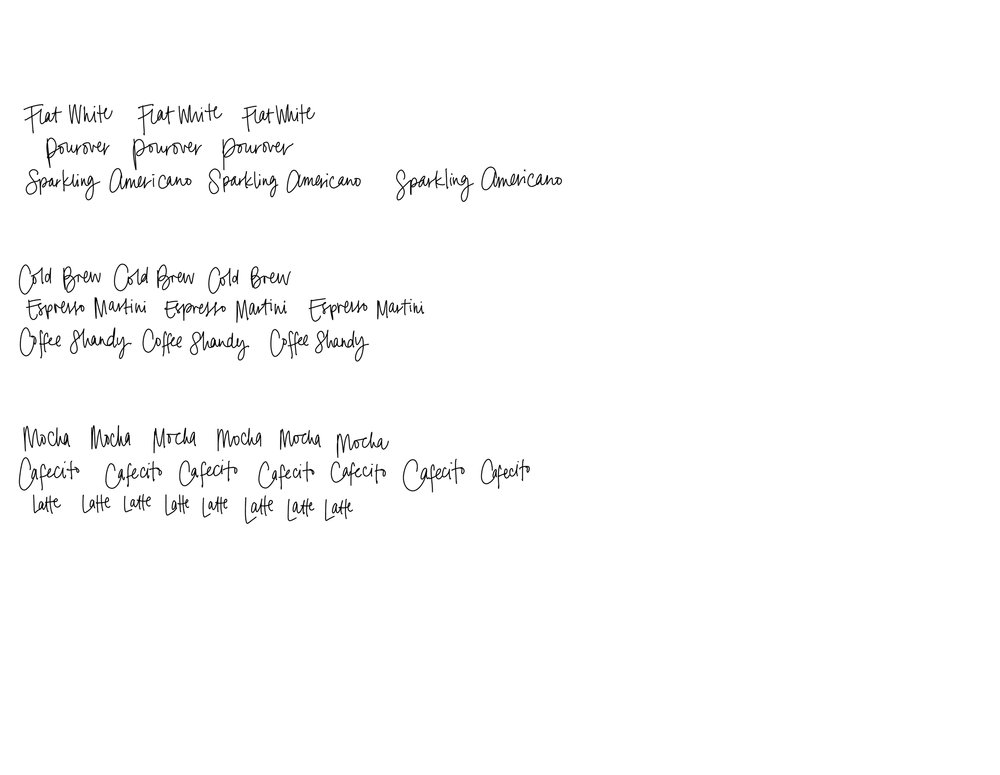 Flat White Flat White Flat White
Pourover Pourover Pourover
Sparkling Americano Sparkling Americano Sparkling Americano
Cold Brew Cold Brew Cold Brew
Espresso Martini Espresso Martini Espresso Martini
Coffee Shandy Coffee Shandy Coffee Shandy
Mocha Mocha Mocha Mocha Mocha Mocha
Cafecito Cafecito Cafecito Cafecito Cafecito Cafecito Cafecito
Latte Latte Latte Latte Latte Latte Latte Latte